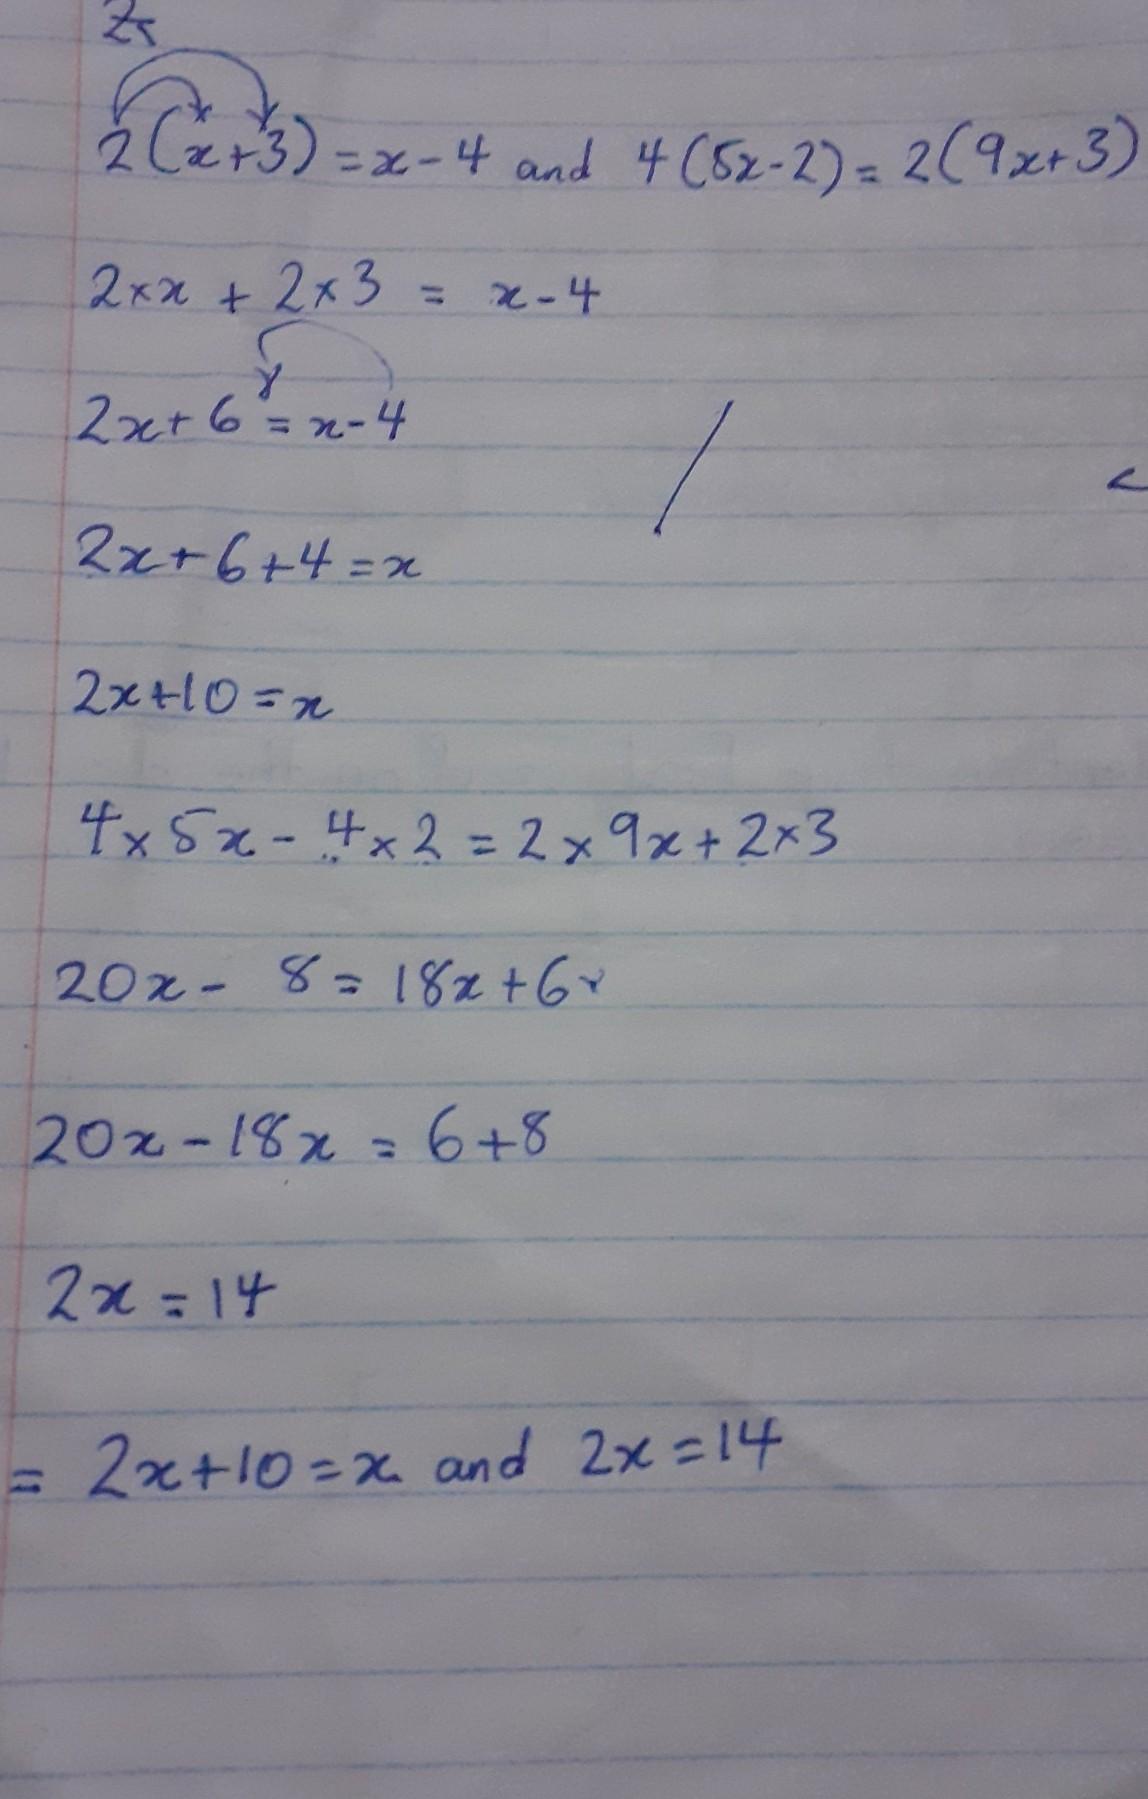 2(x+3)=x-4 and 4(5x-2)=2(9x+3)
2×x + 2×3 = x-4
2x+6=x-4
2x+6+4=x
2x+10=x
4×5x-4×2=2×9x+2×3
20x- 8=18x+6
20x-18x=6+8
2x=14
= 2x+10=x and 2x=14